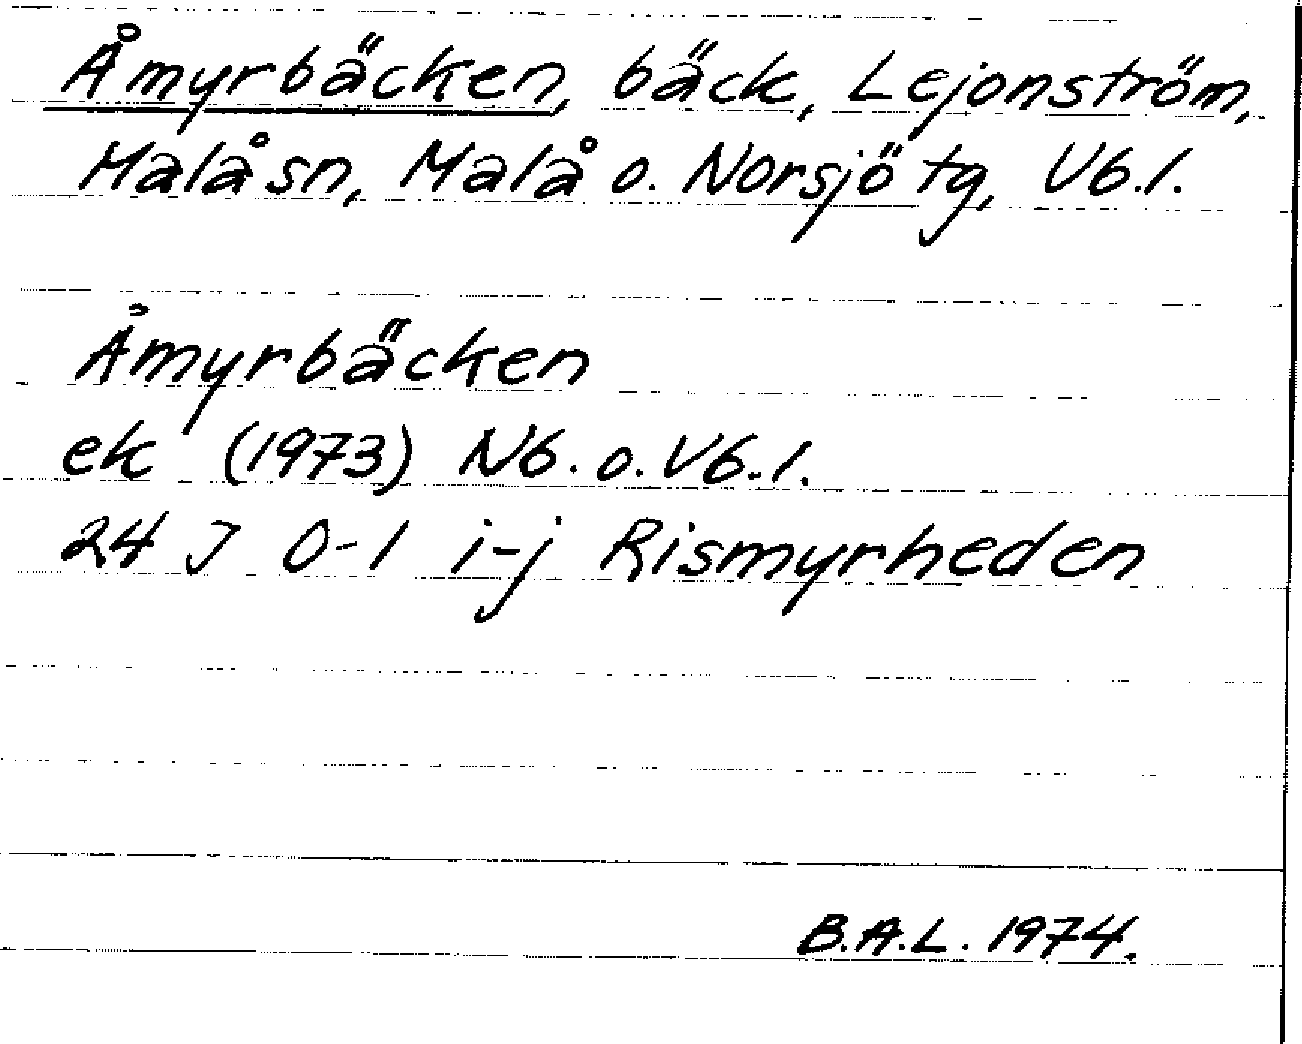 Åmyrbäcken, bäck, Lejonström,
Malå sn, Malå o. Norsjö tg, Vb.l.
Åmyrbäcken
ek (1973) Nb. o. Vb.l.
24 J 0-1 i-j Rismyrheden
B.A.L. 1974.